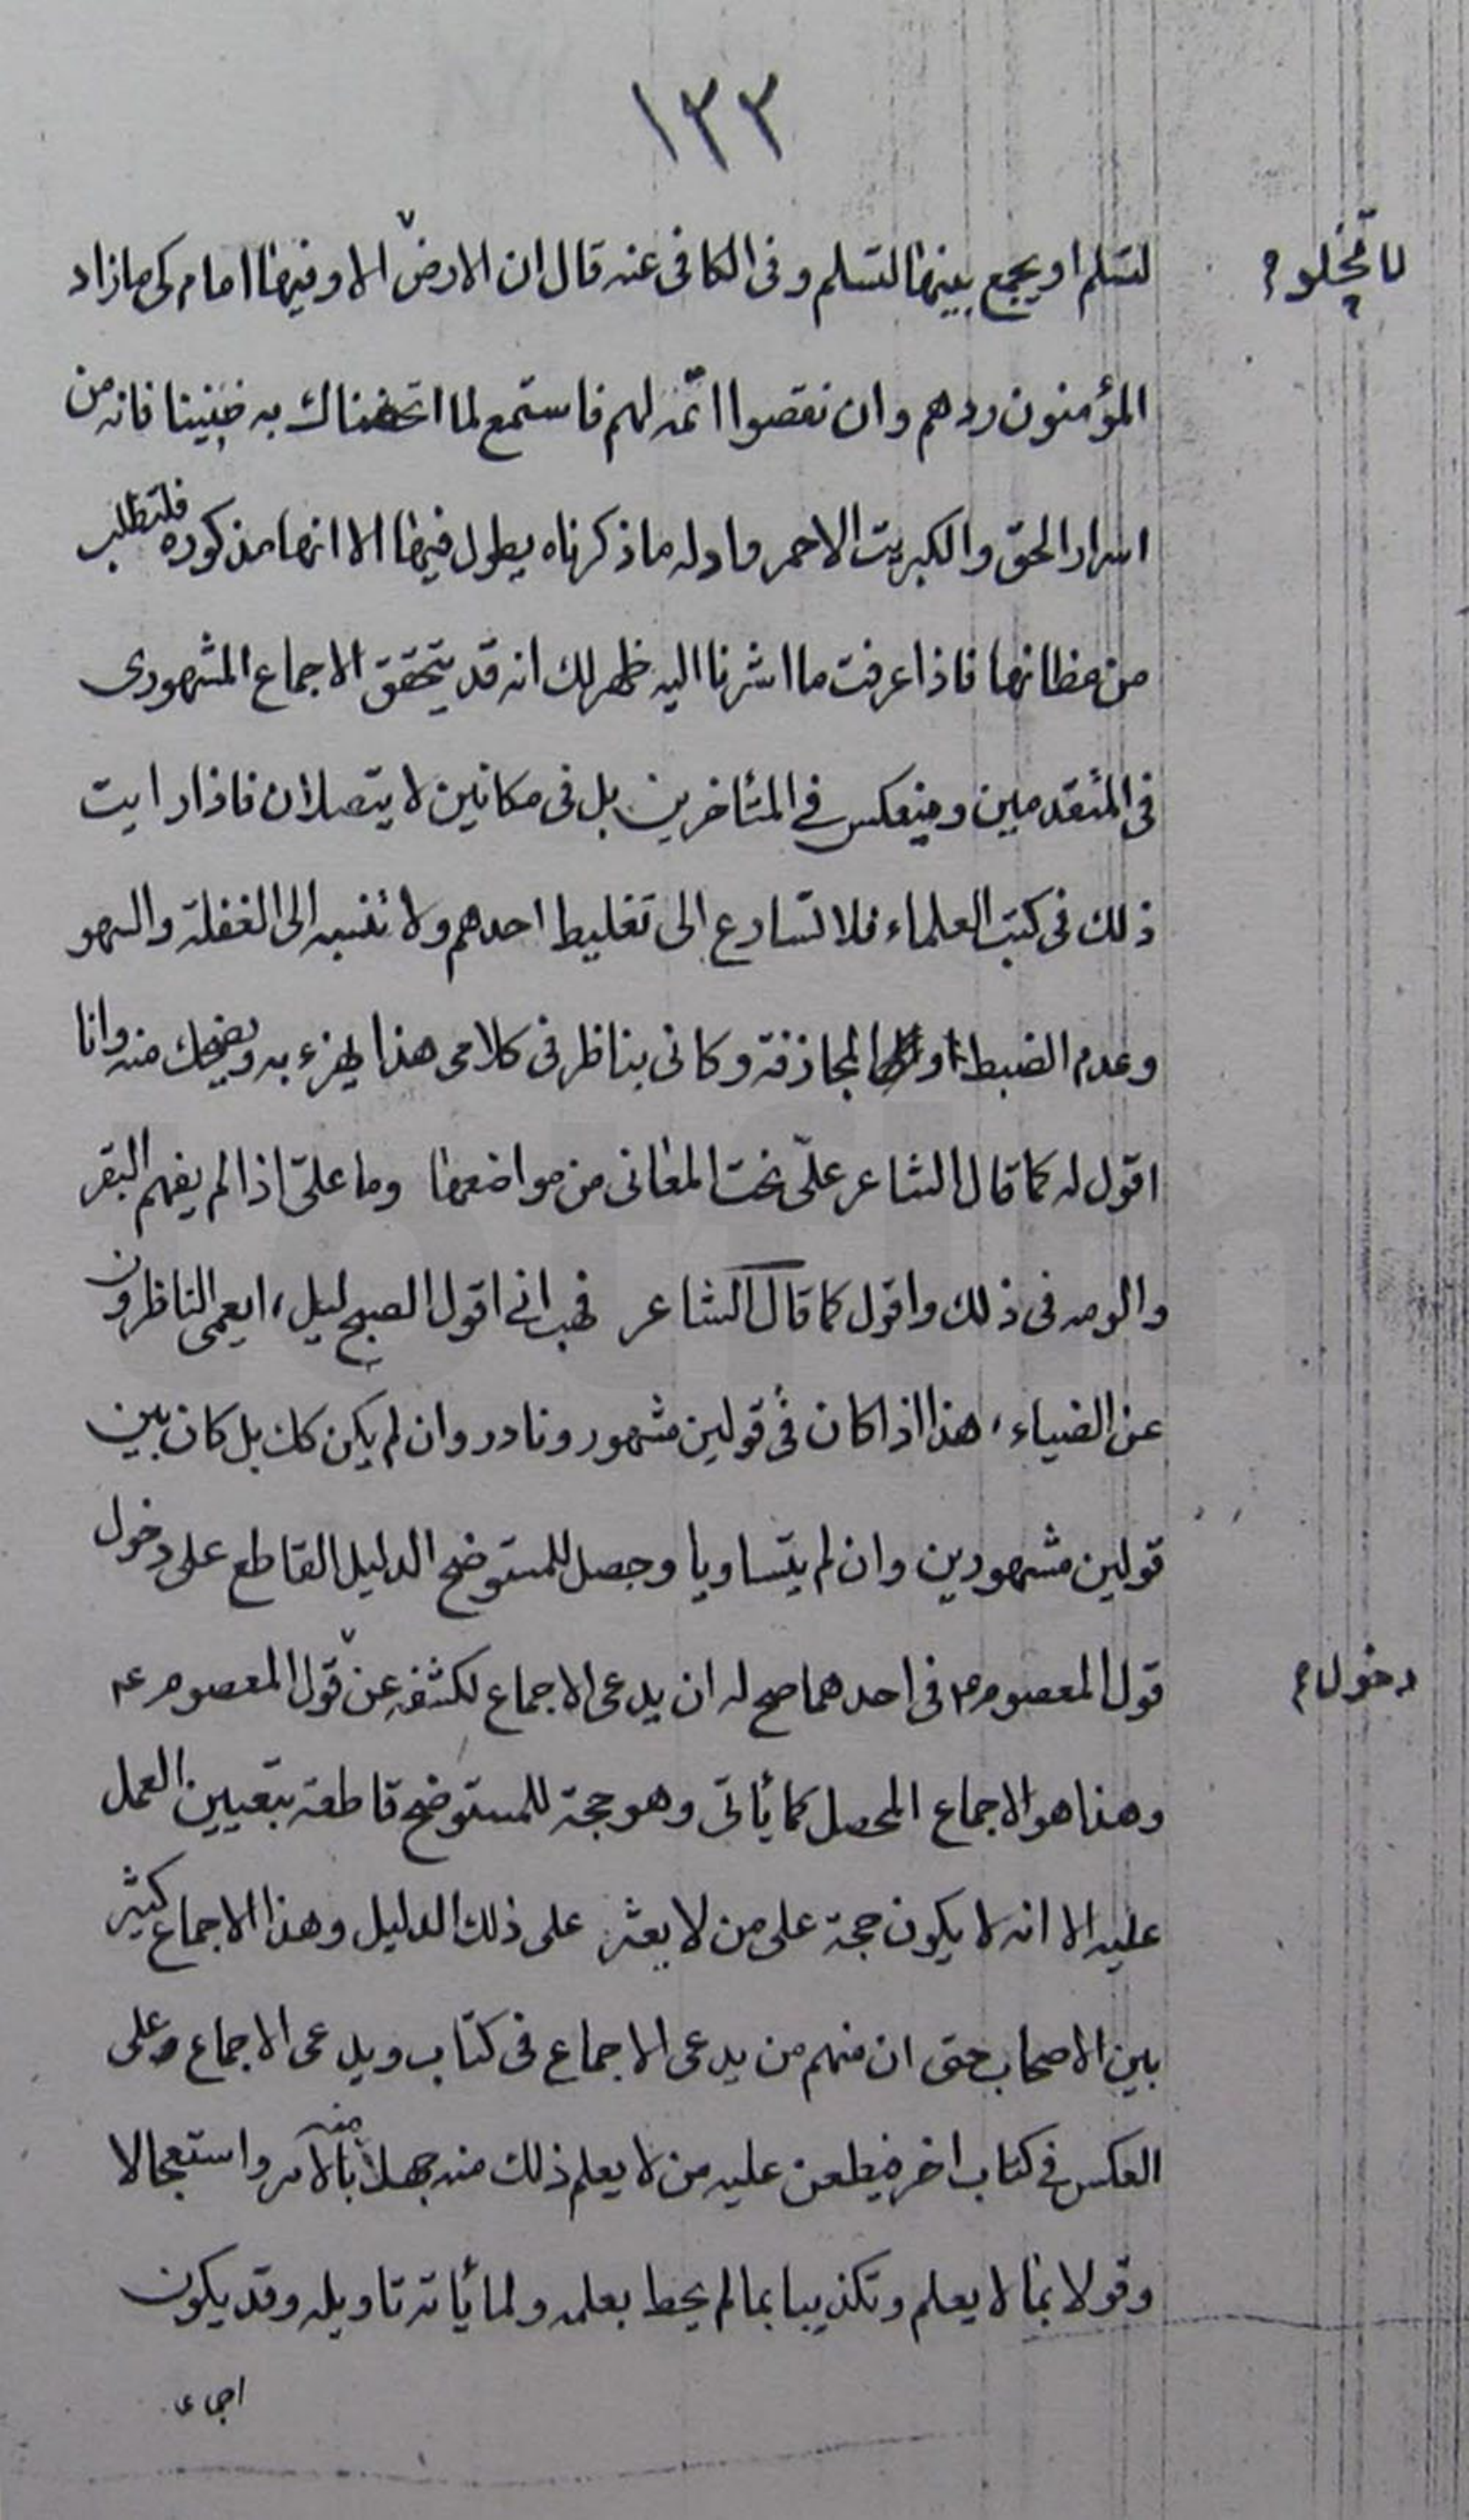 ١٣٣
لتسلم او يجمع بينها لتسلم وفى الكافى عنه قال ان الارض الا وفيها امام كى ما زاد
لا تخلو
المؤمنون ردهم وان نقصوا اتمه لهم فاستمع لما اتحفناك به فانه من
اسرار الحق والكبريت الاحمر وادله ما ذكرناه يطول فيها الا انها مذكوره فلتطلب
من مظانها فاذا عرفت ما اشرنا اليه ظهر لك انه قد يتحقق الاجماع المشهورى
فى المتقدمين وينعكس فى المتأخرين بل فى مكانين لا يتصلان فاذا رايت
ذلك فى كتب العلماء فلا تسارع الى تغليط احدهم ولا تنسبه الى الغفلة والسهو
وعدم الضبط او المجازفة وكانى بناظر فى كلامى هذا يهزء به ويضحك منه وانا
اقول له كما قال الشاعر علىّ نحت المعانى من مواضعها وما علىّ اذا لم يفهم البقر
والومه فى ذلك واقول كما قال الشاعر فهب انى اقول الصبح ليل، ايعمى الناظرون
عن الضياء، هذا اذا كان فى قولين مشهور ونادر وان لم يكن كك بل كان بين
قولين مشهورين وان لم يتساويا وحصل للمستوضح الدليل القاطع على دخول
قول المعصوم ع فى احدهما صح له ان يدعى الاجماع لكشفه عن قول المعصوم ع
دخول
وهذا هو الاجماع المحصل كما يأتى وهو حجة للمستوضح قاطعة بتعيين العمل
عليه الا انه لا يكون حجة على من لا يعثر على ذلك الدليل وهذا الاجماع كثير
بين الاصحاب حتى ان منهم من يدعى الاجماع فى كتاب ويدعى الاجماع على
العكس فى كتاب اخر فيطعن عليه من لا يعلم ذلك منه جهلا منه بالامر واستعجالا
وقولا بما لا يعلم وتكذيبا بما لم يحط بعلمه ولما يأته تاويله وقد يكون